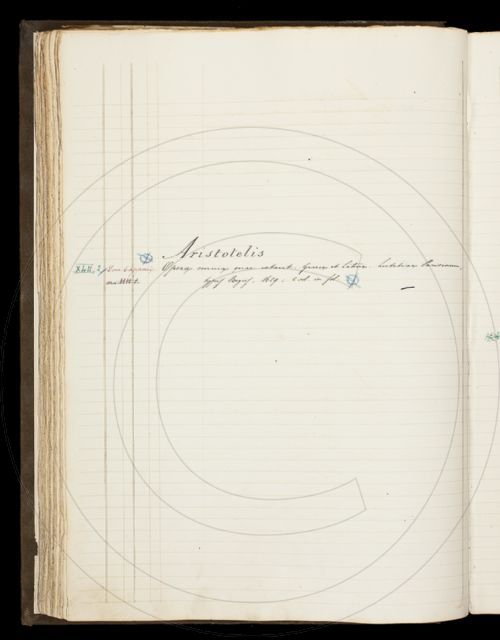 Aristotelis
XLII, 2 Opera omnia quae extant. Graece et Latine. Lutetiae Parisiorum
typis Regiis. 1619. 2 vol. in fol.